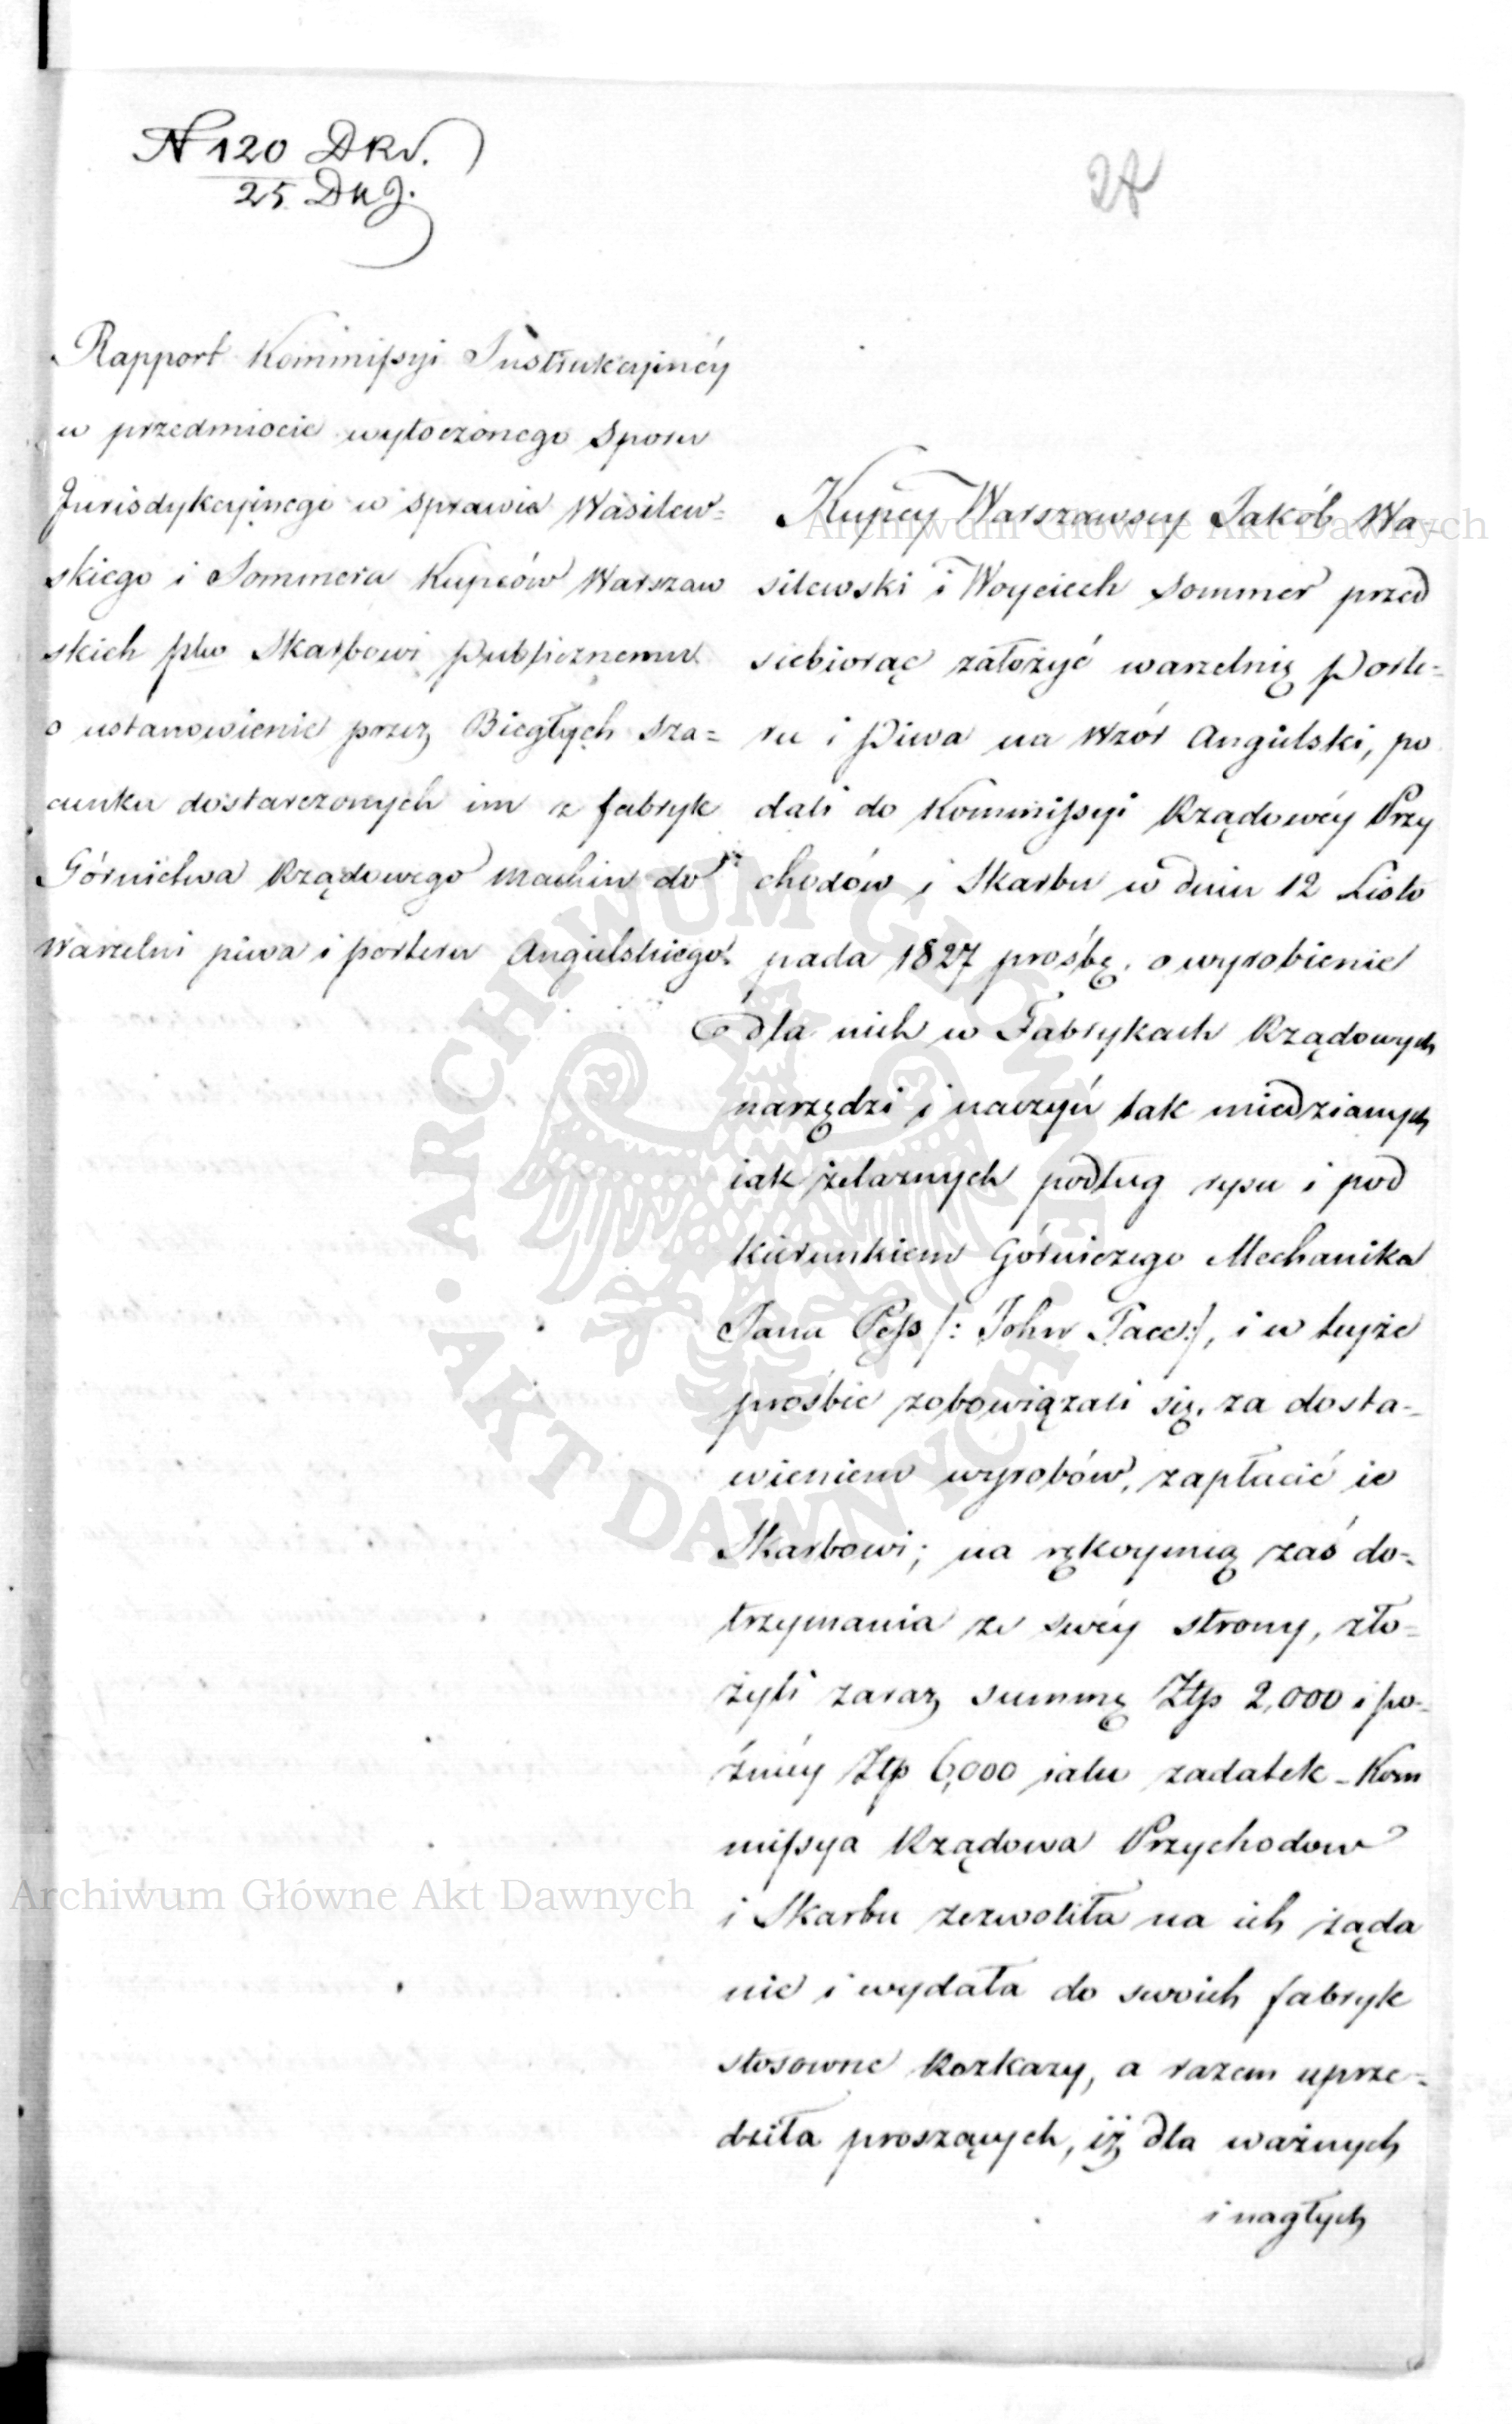 N 120 DRS.
25 DKJ.
27
Rapport Kommissyi Instrukcyinéy
w przedmiocie wytoczonego Sporu
Jurisdykcyinego w sprawie Wasilew-
skiego i Sommera Kupców Warszaw
skich ptko Skarbowi Publicznemu
o ustanowienie przez Biegłych sza=
cunku dostarczonych im z fabryk
Górnictwa Rządowego machin do
warzelni piwa i porteru Angielskiego.
Kupcy Warszawscy Jakób Wa-
silewski i Woyciech Sommer przed
siebiorąc założyć warzelnię Porte-
ru i Piwa na Wzór Angielski, po
dali do Kommissyi Rządowéy Przy
chodów i Skarbu w dniu 12 Listo
pada 1827 prośbę, o wyrobienie
dla nich w Fabrykach Rządowych
narzędzi i naczyń tak miedzianych
iak żelaznych podług rysu i pod
kierunkiem Górniczego Mechanika
Jana Pess /: John Pace:/, i w teyże
prośbie zobowiązali się, za dosta-
wieniem wyrobów, zapłacić ie
Skarbowi; na rękoymią zaś do-
trzymania ze swéy strony, zło-
żyli zaraz summę Złp 2,000 i po-
źniéy Złp 6,000 iako zadatek - Kom
missya Rządowa Przychodow
i Skarbu zezwoliła na ich żąda
nie i wydała do swoich fabryk
stosowne Rozkazy, a razem uprze-
dziła proszących, iż dla ważnych
i nagłych
Archiwum Główne Akt Dawnych
Archiwum Główne Akt Dawnych
ARCHIWUM GŁÓWNE • AKT DAWNYCH •